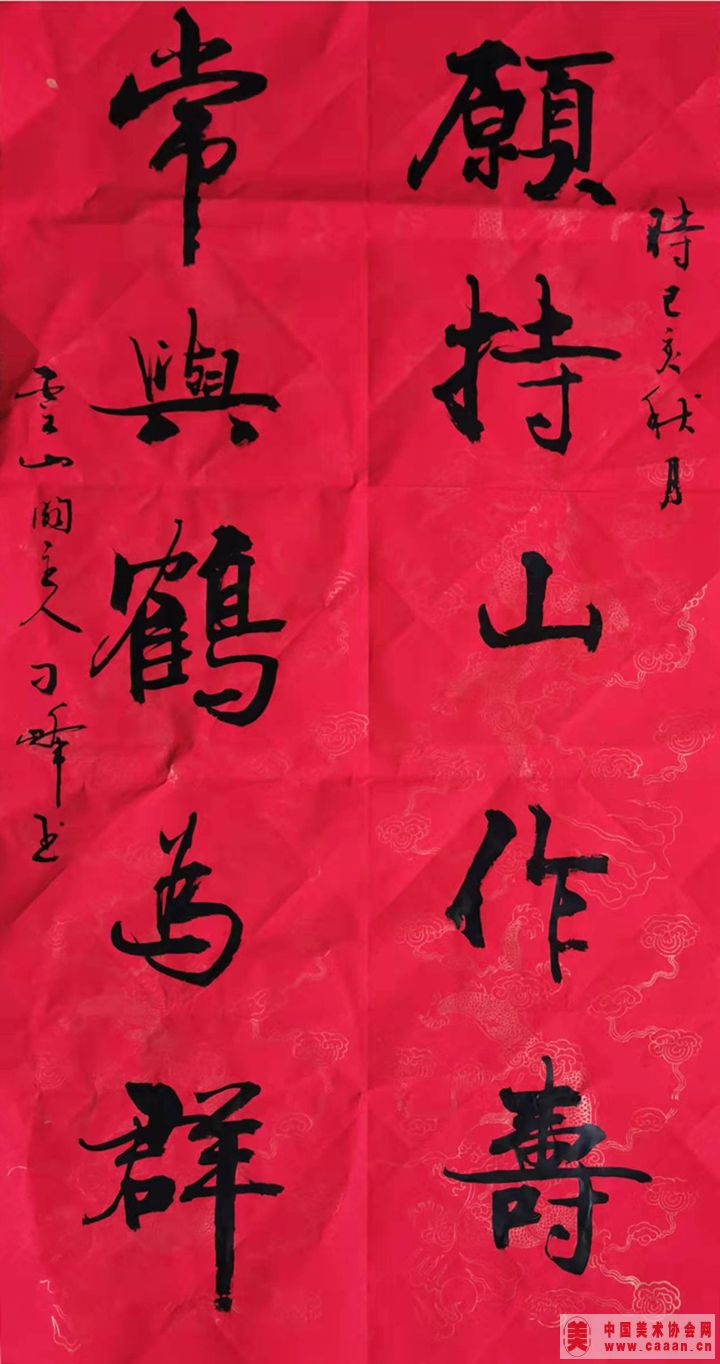 時己亥秋月
願持山作壽
常與鶴為群
雲山閣主人刁峰书
美 中国美术协会网
www.caaan.cn